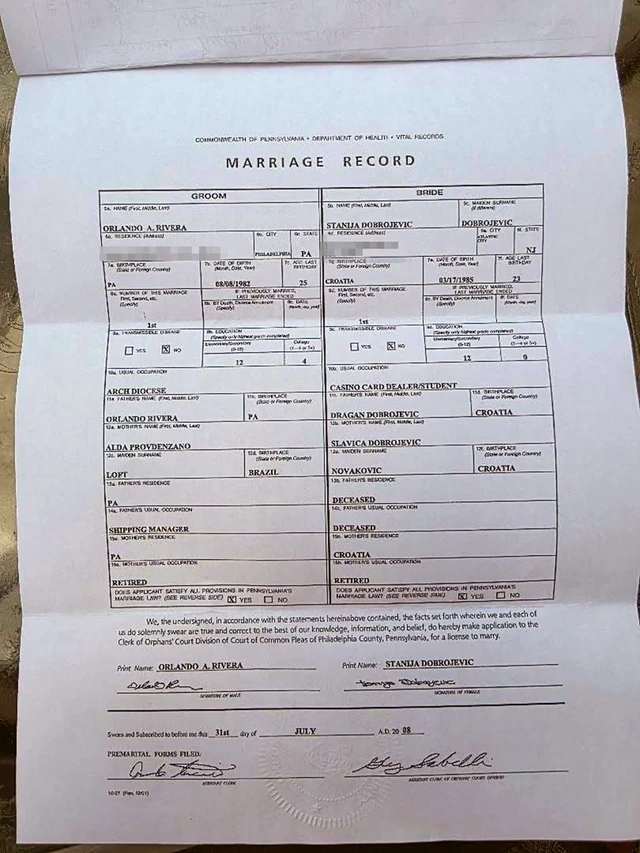 COMMONWEALTH OF PENNSYLVANIA • DEPARTMENT OF HEALTH • VITAL RECORDS
MARRIAGE RECORD
GROOM BRIDE
5a. NAME (First, Middle, Last) 5b. NAME (First, Middle, Last) 5c. MAIDEN SURNAME
(if different)
ORLANDO A. RIVERA STANIJA DOBROJEVIC DOBROJEVIC
6a. RESIDENCE (Address) 6b. CITY 6c. STATE RESIDENCE (Address) CITY STATE
PHILADELPHIA PA ATLANTIC CITY NJ
7a. BIRTHPLACE
(State or Foreign Country) DATE OF BIRTH
(Month, Date, Year) AGE LAST
BIRTHDAY BIRTHPLACE
(State or Foreign Country) DATE OF BIRTH
(Month, Date, Year) AGE LAST
BIRTHDAY
PA 08/08/1982 25 CROATIA 03/17/1985 23
NUMBER OF THIS MARRIAGE
First, Second, etc.
(Specify) IF PREVIOUSLY MARRIED,
LAST MARRIAGE ENDED NUMBER OF THIS MARRIAGE
First, Second, etc.
(Specify) IF PREVIOUSLY MARRIED,
LAST MARRIAGE ENDED
By Death, Divorce Annulment
(Specify) DATE
(Month, day, year) By Death, Divorce Annulment
(Specify) DATE
(Month, day, year)
1st 1st
TRANSMISSIBLE DISEASE EDUCATION
(Specify only highest grade completed) TRANSMISSIBLE DISEASE EDUCATION
(Specify only highest grade completed)
YES X NO Elementary/Secondary
(0-12) College
(1-4 or 5+) YES X NO Elementary/Secondary
(0-12) College
(1-4 or 5+)
12 4 12 0
10a. USUAL OCCUPATION 10b. USUAL OCCUPATION
ARCH DIOCESE CASINO CARD DEALER/STUDENT
11a. FATHER'S NAME (First, Middle, Last) 11b. BIRTHPLACE
(State or Foreign Country) FATHER'S NAME (First, Middle, Last) 11d. BIRTHPLACE
(State or Foreign Country)
ORLANDO RIVERA PA DRAGAN DOBROJEVIC CROATIA
12a. MOTHER'S NAME (First, Middle, Last) MOTHER'S NAME (First, Middle, Last)
ALDA PROVDENZANO SLAVICA DOBROJEVIC
MAIDEN SURNAME BIRTHPLACE
(State or Foreign Country) MAIDEN SURNAME BIRTHPLACE
(State or Foreign Country)
LOFT BRAZIL NOVAKOVIC CROATIA
13a. FATHER'S RESIDENCE 13b. FATHER'S RESIDENCE
PA DECEASED
14a. FATHER'S USUAL OCCUPATION 14b. FATHER'S USUAL OCCUPATION
SHIPPING MANAGER DECEASED
15a. MOTHER'S RESIDENCE 15b. MOTHER'S RESIDENCE
PA CROATIA
16a. MOTHER'S USUAL OCCUPATION 16b. MOTHER'S USUAL OCCUPATION
RETIRED RETIRED
DOES APPLICANT SATISFY ALL PROVISIONS IN PENNSYLVANIA'S
MARRIAGE LAW? (SEE REVERSE SIDE) X YES NO
DOES APPLICANT SATISFY ALL PROVISIONS IN PENNSYLVANIA'S
MARRIAGE LAW? (SEE REVERSE SIDE) X YES NO
We, the undersigned, in accordance with the statements hereinabove contained, the facts set forth wherein we and each of
us do solemnly swear are true and correct to the best of our knowledge, information, and belief, do hereby make application to the
Clerk of Orphans' Court Division of Court of Common Pleas of Philadelphia County, Pennsylvania, for a license to marry.
Print Name: ORLANDO A. RIVERA Print Name: STANIJA DOBROJEVIC
SIGNATURE OF MALE SIGNATURE OF FEMALE
Sworn and Subscribed to before me this 31st day of JULY A.D. 20 08
PREMARITAL FORMS FILED:
ASSISTANT CLERK ASSISTANT CLERK OF ORPHANS' COURT DIVISION
10-27 (Rev. 12/01)